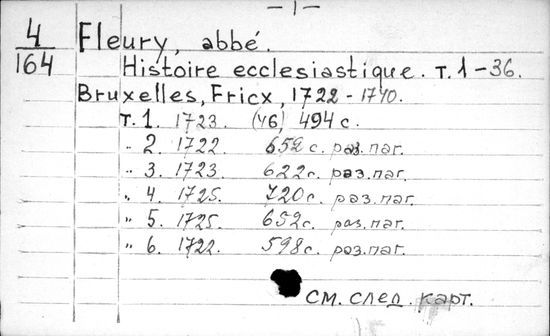 — 1 —
4
164
Fleury, abbé.
Histoire ecclesiastique. т. 1-36.
Bruxelles, Fricx, 1722-1740.
т. 1. 1723. (46) 494 с.
„ 2. 1722. 652 с. раз. паг.
„ 3. 1723. 622 с. раз. паг.
„ 4. 1725. 720 с. раз. паг.
„ 5. 1725. 652 с. раз. паг.
„ 6. 1722. 598 с. раз. паг.
см. след. карт.